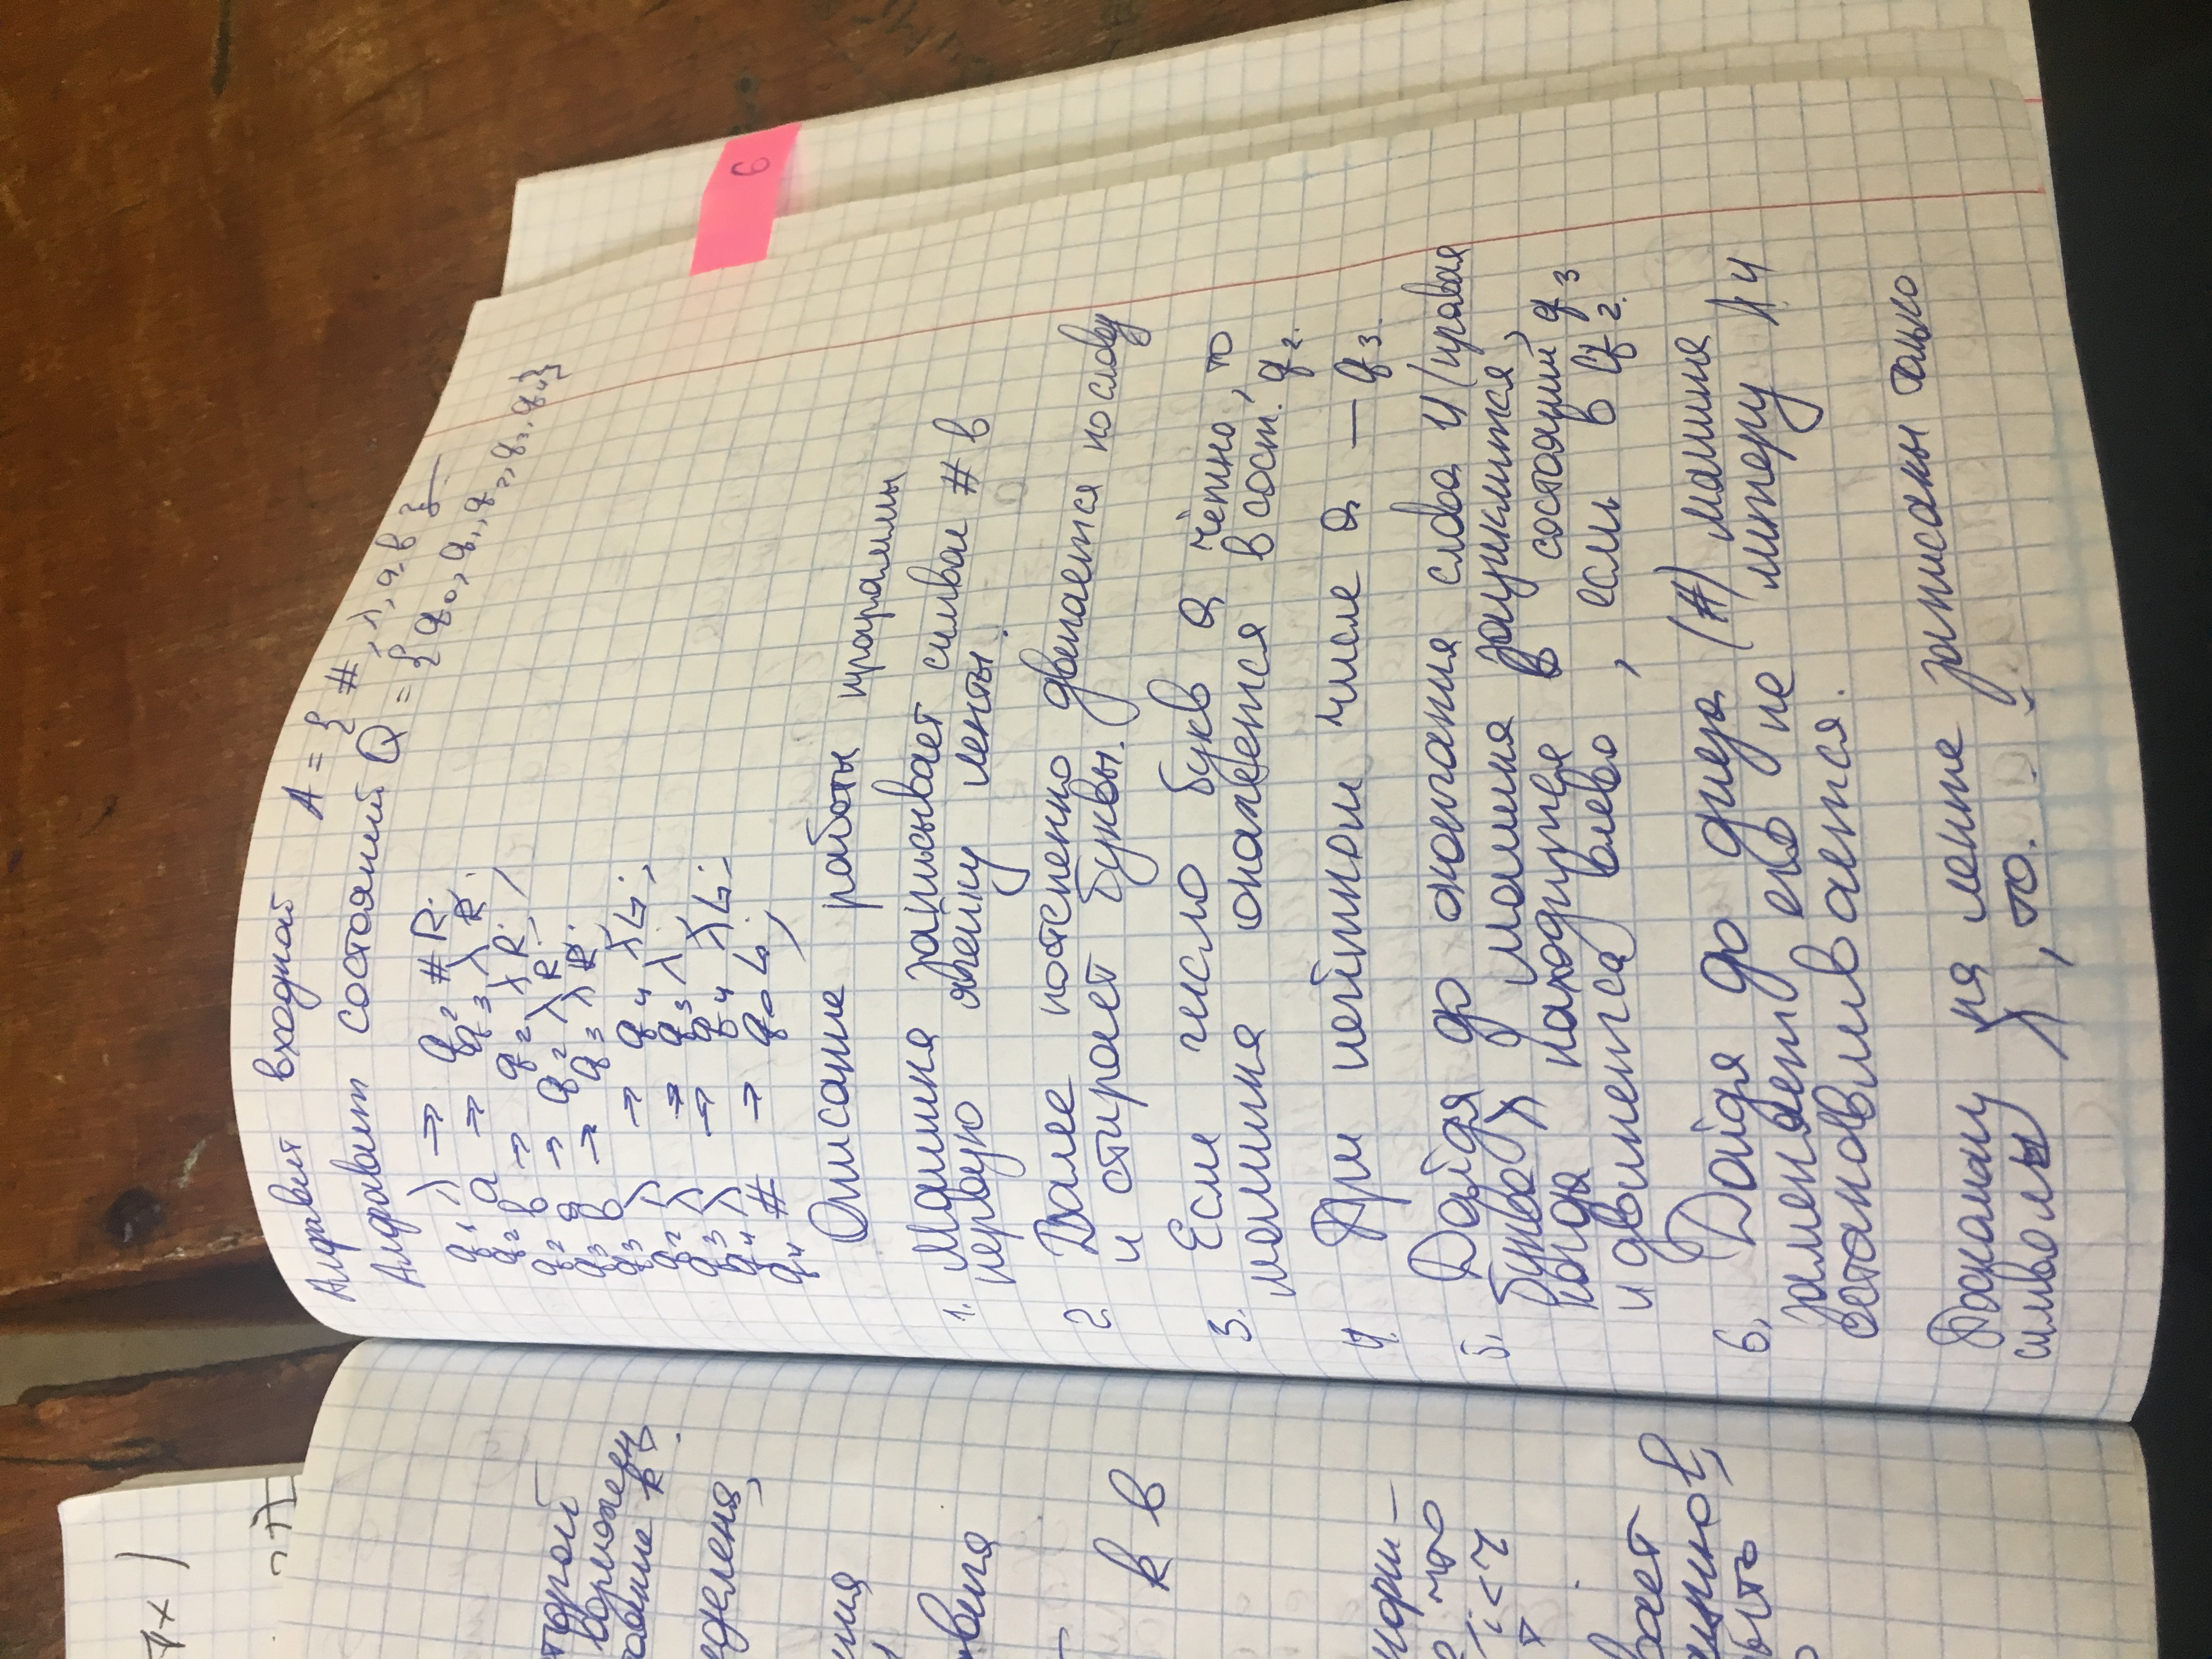 7x )
торой
тояние k
еделена,
k в
что
i<7
6
Алфавит входной A = { #, λ, a, b }
Алфавит состояний Q = { q0, q1, q2, q3, q4 }
q1 λ → q2 # R;
q2 a → q3 λ R;
q2 b → q2 λ R;
q3 a → q2 λ R;
q3 b → q3 λ R;
q2 λ → q4 λ L;
q3 λ → q3 λ
q4 λ → q4 λ L;
q4 # → q0 L;
Описание работы программы
1. Машина записывает символ # в
первую ячейку ленты.
2 Далее постепенно двигается по слову
и стирает буквы.
3. Если число букв a чётно, то
машина окажется в сост. q2.
4. При нечётном числе a — q3.
5. Дойдя до окончания слова и/правая
буква λ машина зациклится,
когда находится в состоянии q3
и двинется влево, если в q2.
6. Дойдя до диеза (#) машина
заменяет его на литеру λ и
останавливается.
Поскольку на ленте записаны только
символы λ, то. . -